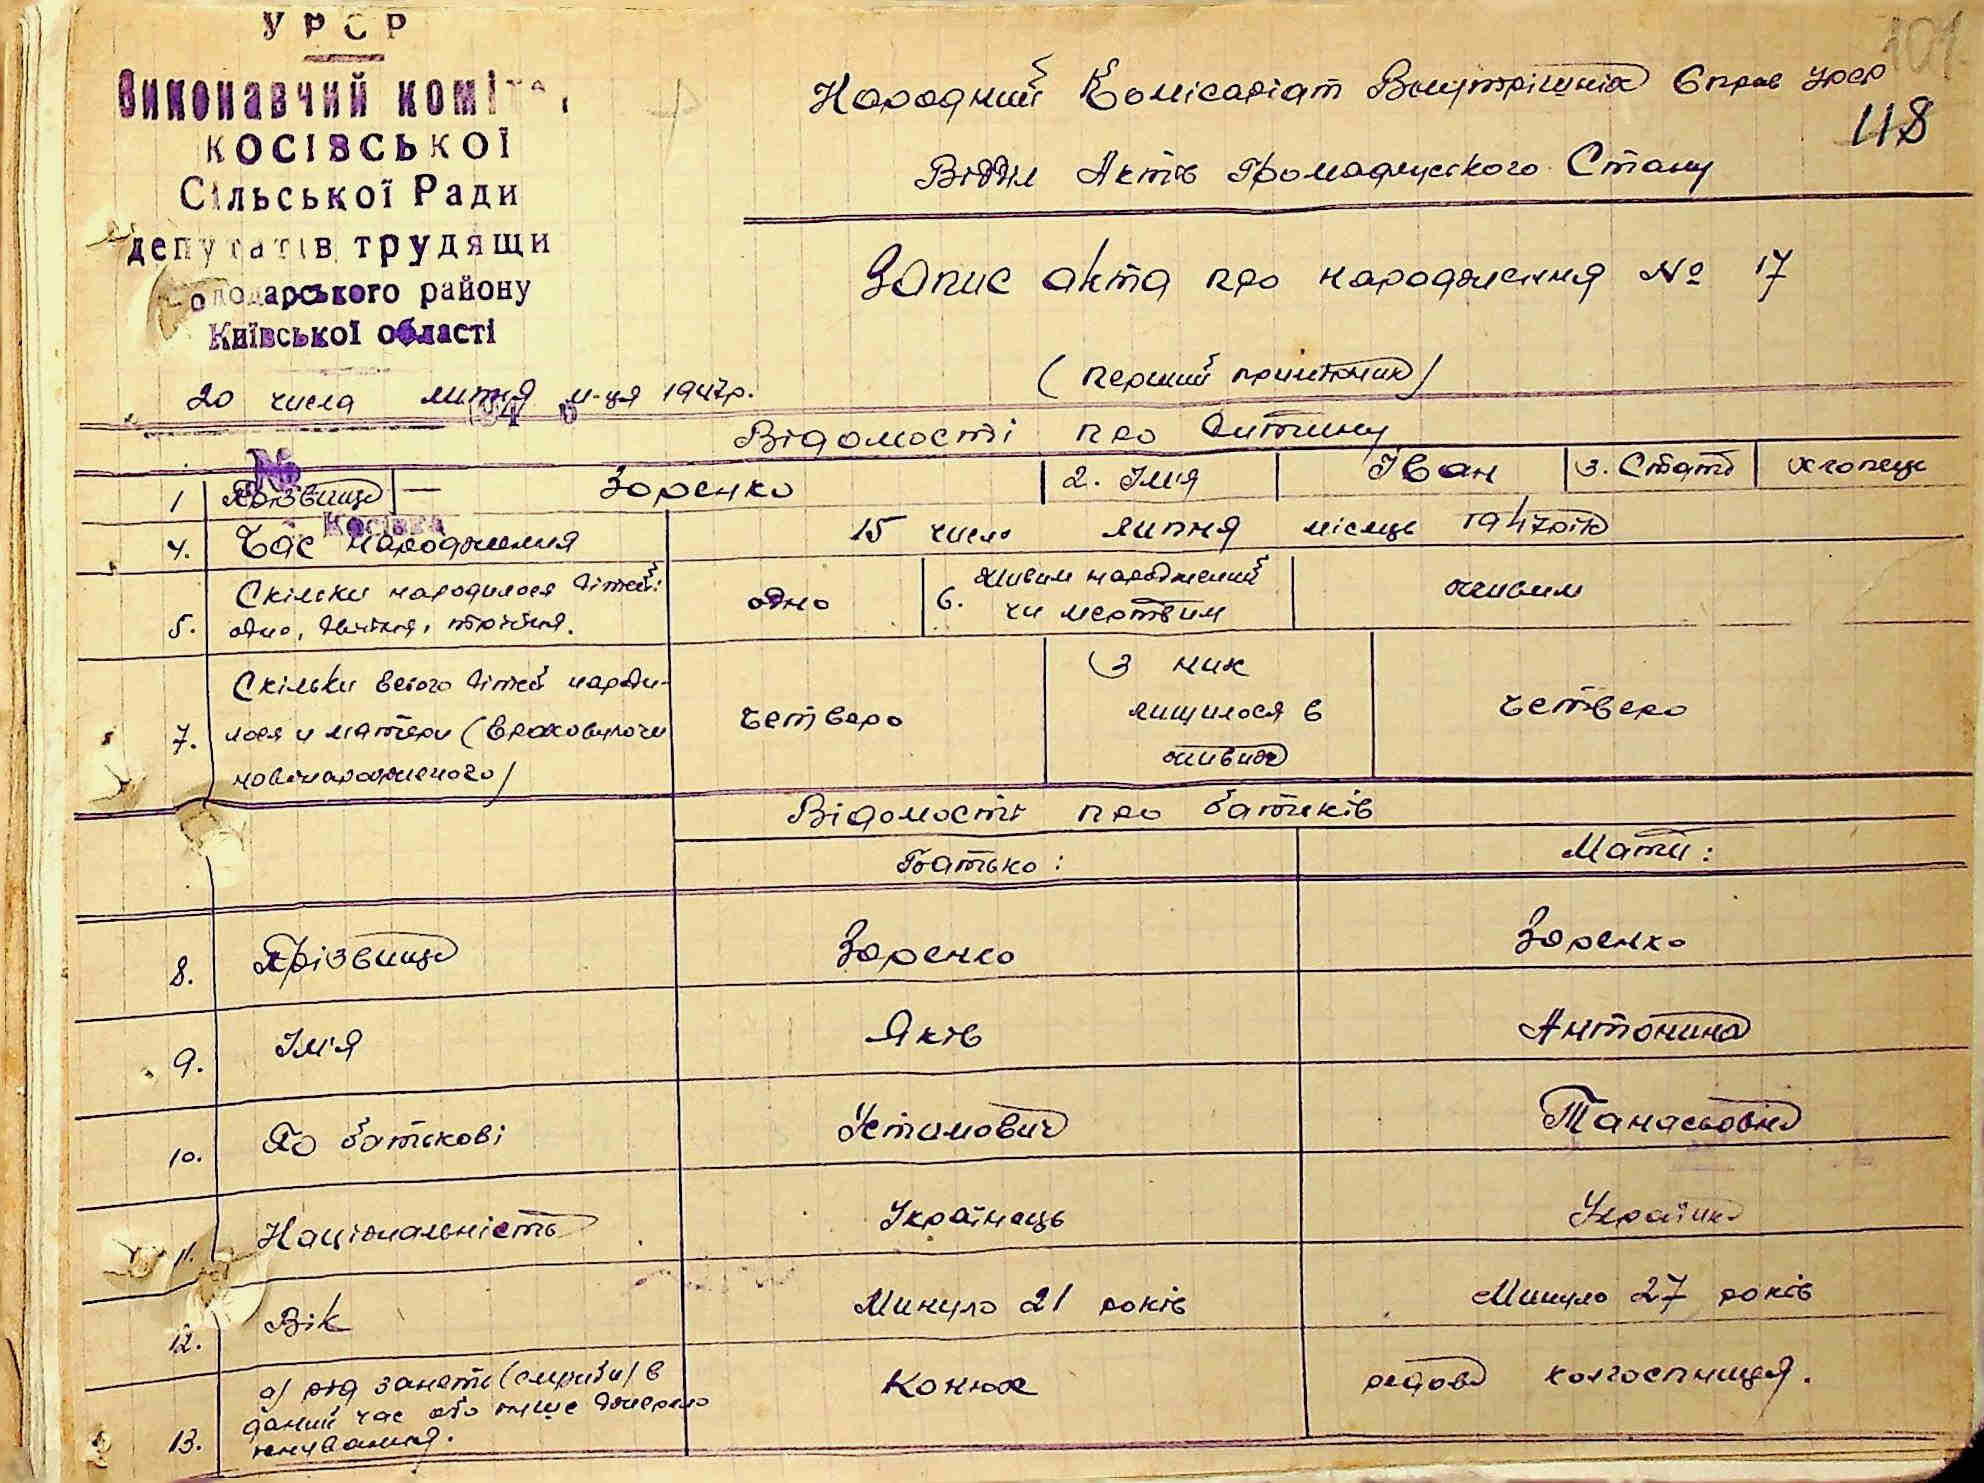 УРСР
Виконавчий коміт
КОСІВСЬКОЇ
Сільської Ради
депутатів трудящи
олодарського району
Київської області
20 числа липня м-ця 1947р.
101
Народний Комісаріат Внутрішніх Справ УРСР
118
Відділ Актів Громадянського Стану
Запис акта про народження № 17
(перший примірник)
Відомості про дитину
№
Косівка
1 Прізвище — Зоренко 2. Імя Іван 3. Стать хлопець
4. Час народження 15 число липня місяць 1947рік
5. Скільки народилося дітей: одно, двійня, трійня. одно 6. живим народжений чи мертвим живим
7. Скільки всього дітей народи-
лося у матери (враховуючи
новонародженого) четверо З них лишилося в живих четверо
Відомості про батьків
Батько: Мати:
8. Прізвище Зоренко Зоренко
9. Ім'я Яків Антонина
10. По батькові Устимович Танасовна
11. Національність Українець Українка
12. Вік Минуло 21 років Минуло 27 років
13. а) рід занять (служби) в
даний час або інше джерело
існування. Конюх рядова колгоспниця.